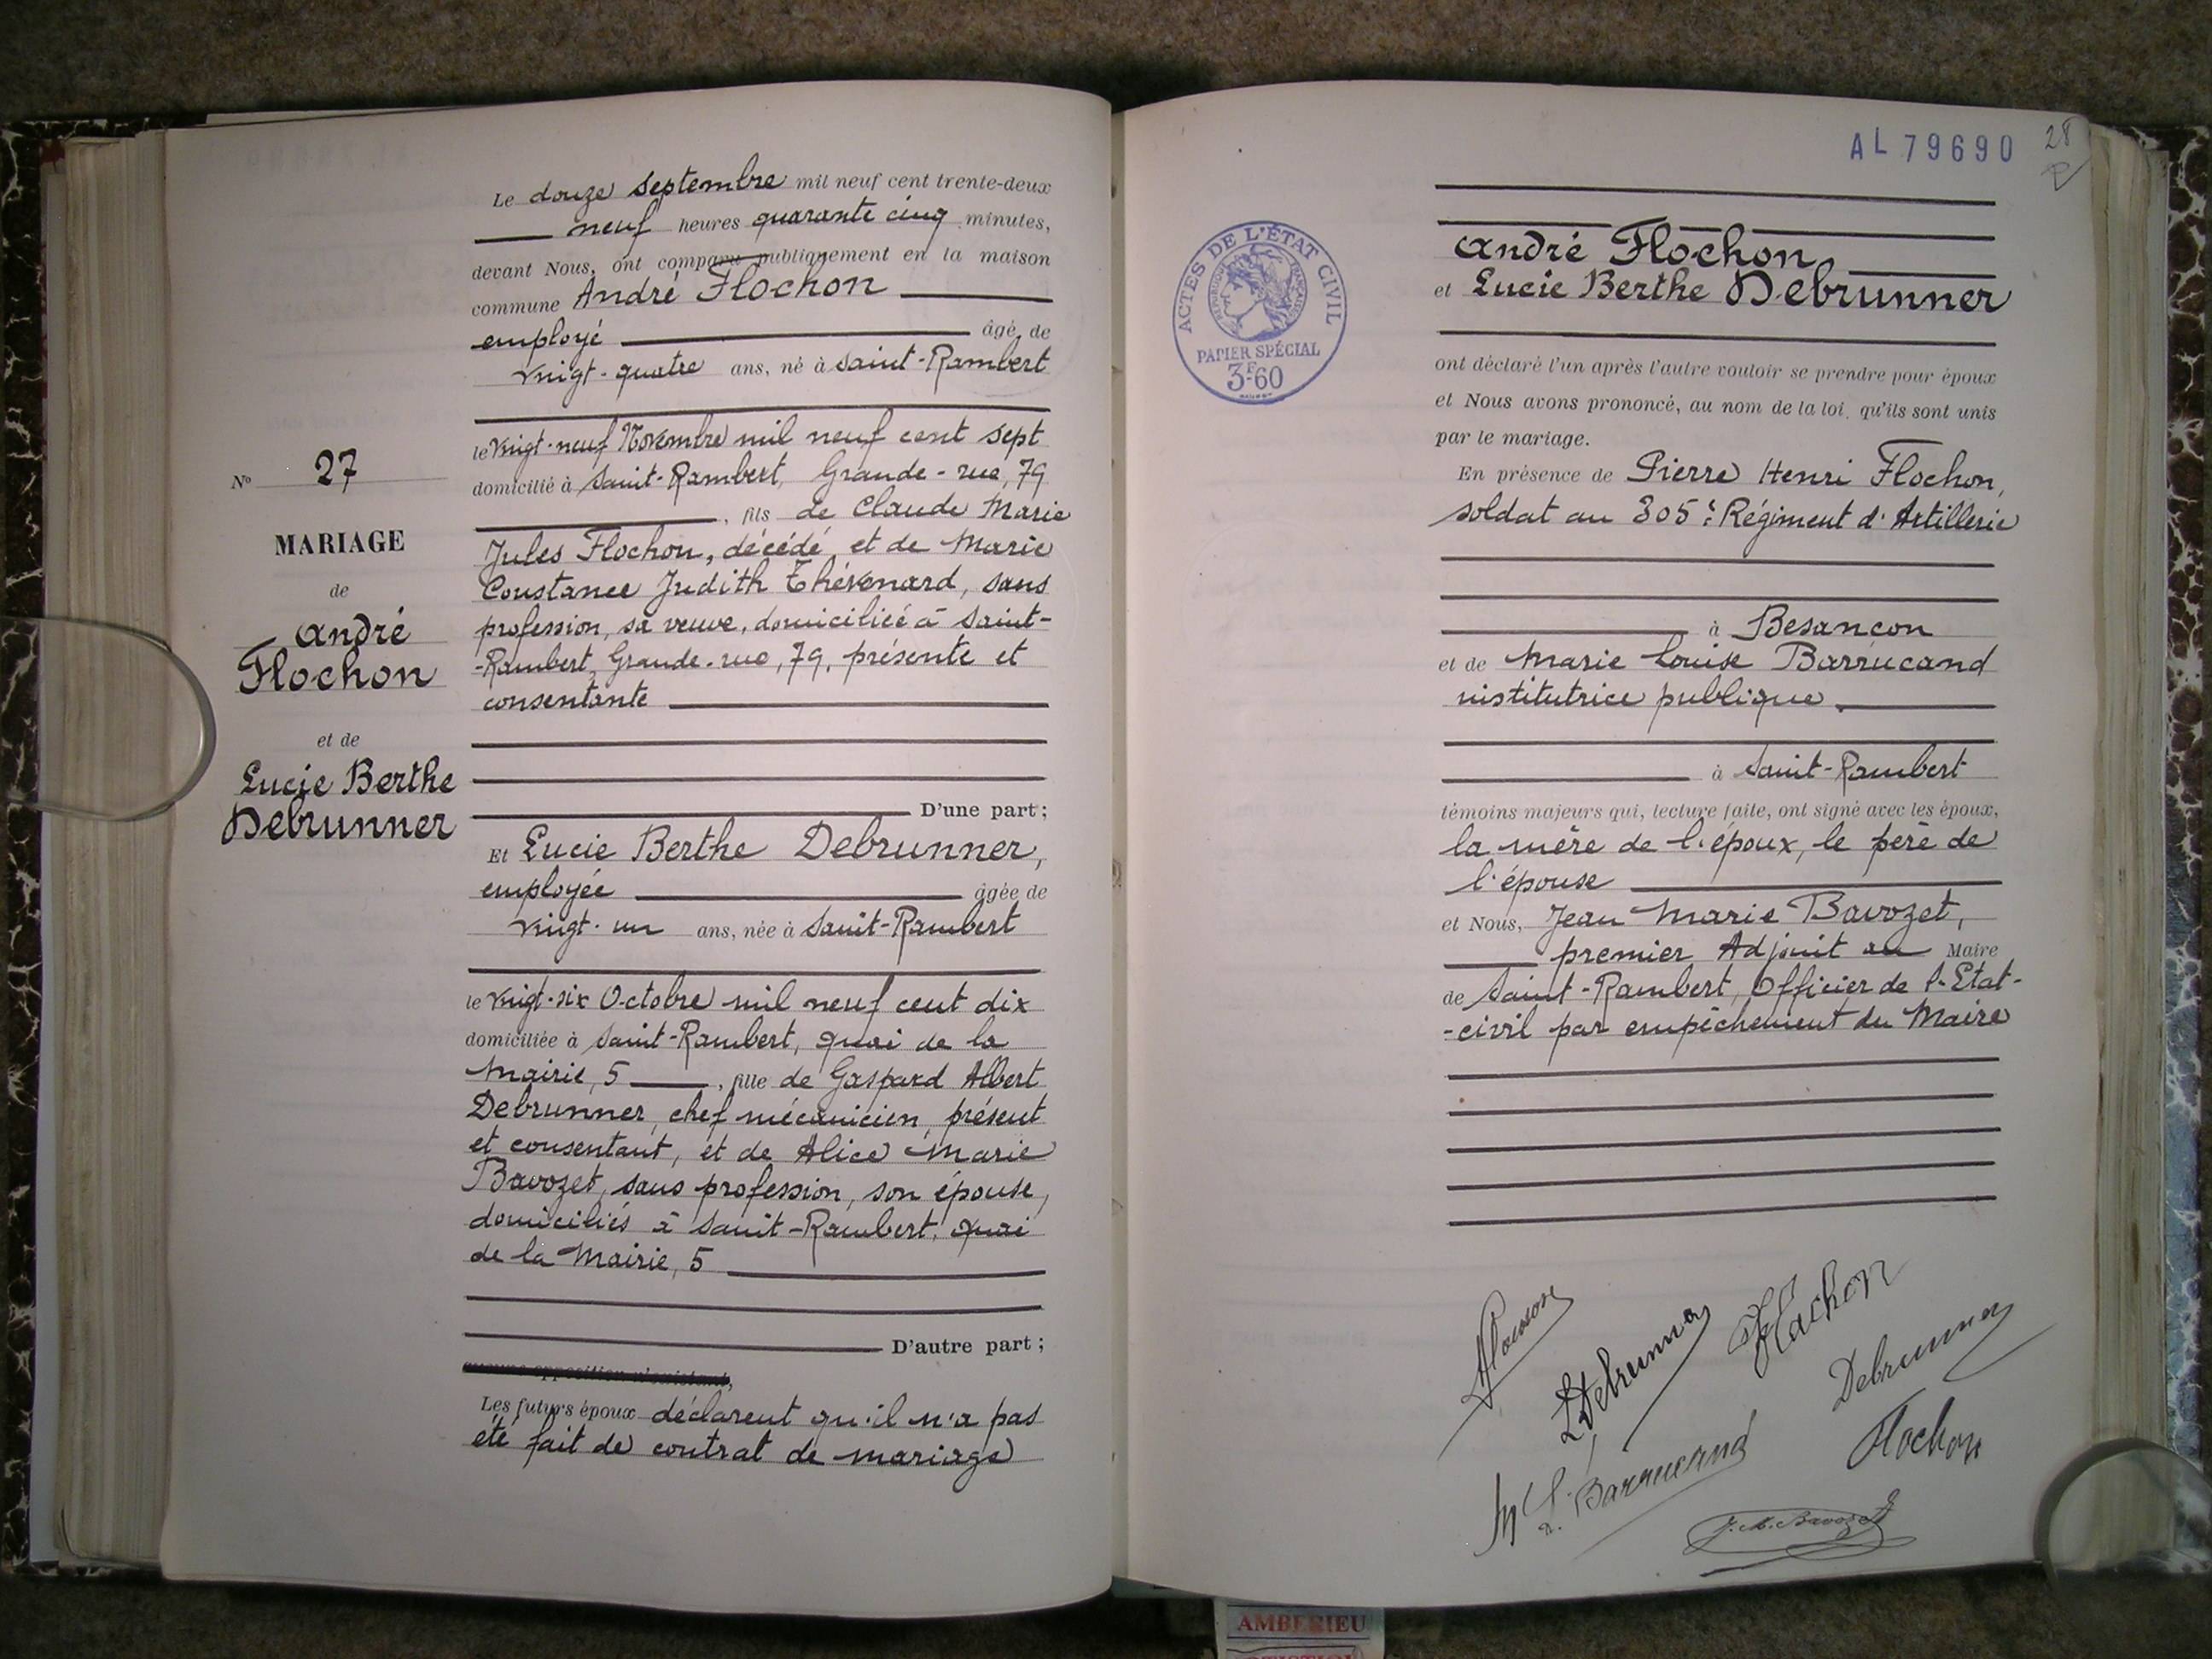 Le douze septembre mil neuf cent trente-deux
neuf heures quarante cinq minutes,
devant Nous, ont comparu publiquement en la maison
commune André Flochon
employé âgé de
vingt-quatre ans, né à Saint-Rambert
le vingt-neuf Novembre mil neuf cent sept
domicilié à Saint-Rambert, Grande-rue, 79
, fils de Claude Marie
Jules Flochon, décédé, et de Marie
Constance Judith Thévenard, sans
profession, sa veuve, domiciliée à Saint-
-Rambert, Grande-rue, 79, présente et
consentante
D'une part;
Et Lucie Berthe Debrunner,
employée âgée de
vingt-un ans, née à Saint-Rambert
le vingt-six Octobre mil neuf cent dix
domiciliée à Saint-Rambert, quai de la
Mairie, 5, fille de Gaspard Albert
Debrunner, chef mécanicien, présent
et consentant, et de Alice Marie
Bavozet, sans profession, son épouse,
domiciliés à Saint-Rambert, quai
de la Mairie, 5
D'autre part;
aucune opposition n'existant,
Les futurs époux déclarent qu'il n'a pas
été fait de contrat de mariage
No 27
MARIAGE
de
André
Flochon
et de
Lucie Berthe
Debrunner
AL 79690
28
ACTES DE L'ÉTAT CIVIL
RÉPUBLIQUE FRANÇAISE
PAPIER SPÉCIAL
3F60
André Flochon
et Lucie Berthe Debrunner
ont déclaré l'un après l'autre vouloir se prendre pour époux
et Nous avons prononcé, au nom de la loi, qu'ils sont unis
par le mariage.
En présence de Pierre Henri Flochon,
soldat au 305e Régiment d'Artillerie
à Besançon
et de Marie Louise Barrucand
institutrice publique
à Saint-Rambert
témoins majeurs qui, lecture faite, ont signé avec les époux,
la mère de l'époux, le père de
l'épouse
et Nous, Jean Marie Bavozet,
premier Adjoint au Maire
de Saint-Rambert, Officier de l'Etat-
-civil par empêchement du Maire
Flochon
LDebrunner
Debrunner
Flochon
M L. Barrucand
J. M. Bavozet
AMBERIEU